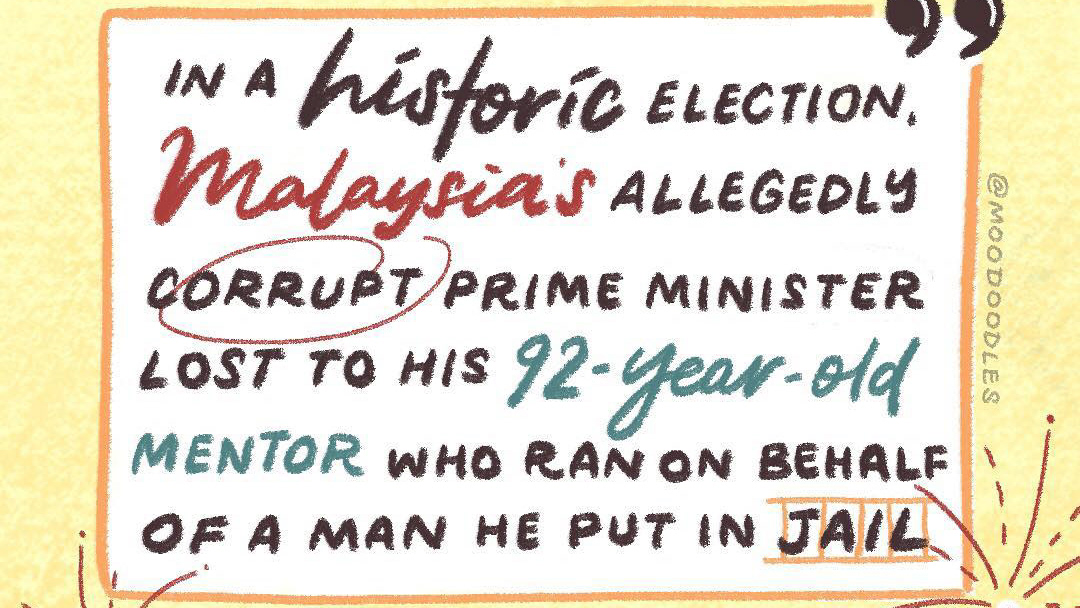 IN A historic ELECTION,
Malaysia's ALLEGEDLY
CORRUPT PRIME MINISTER
LOST TO HIS 92-year-old
MENTOR WHO RAN ON BEHALF
OF A MAN HE PUT IN JAIL
@MOODOODLES